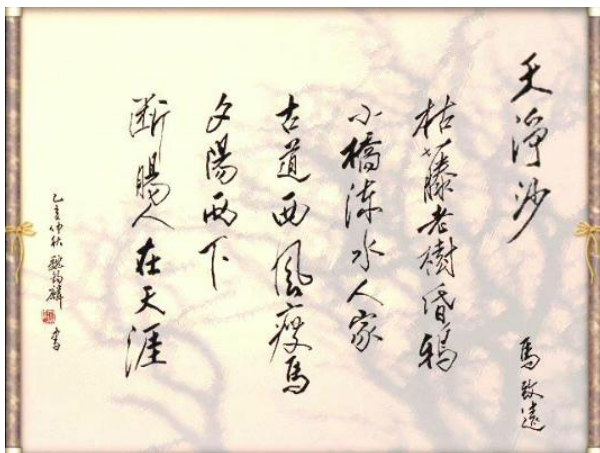 天淨沙
馬致遠
枯藤老樹昏鴉
小橋流水人家
古道西風瘦馬
夕陽西下
断腸人在天涯
乙亥仲秋 魏麟 書